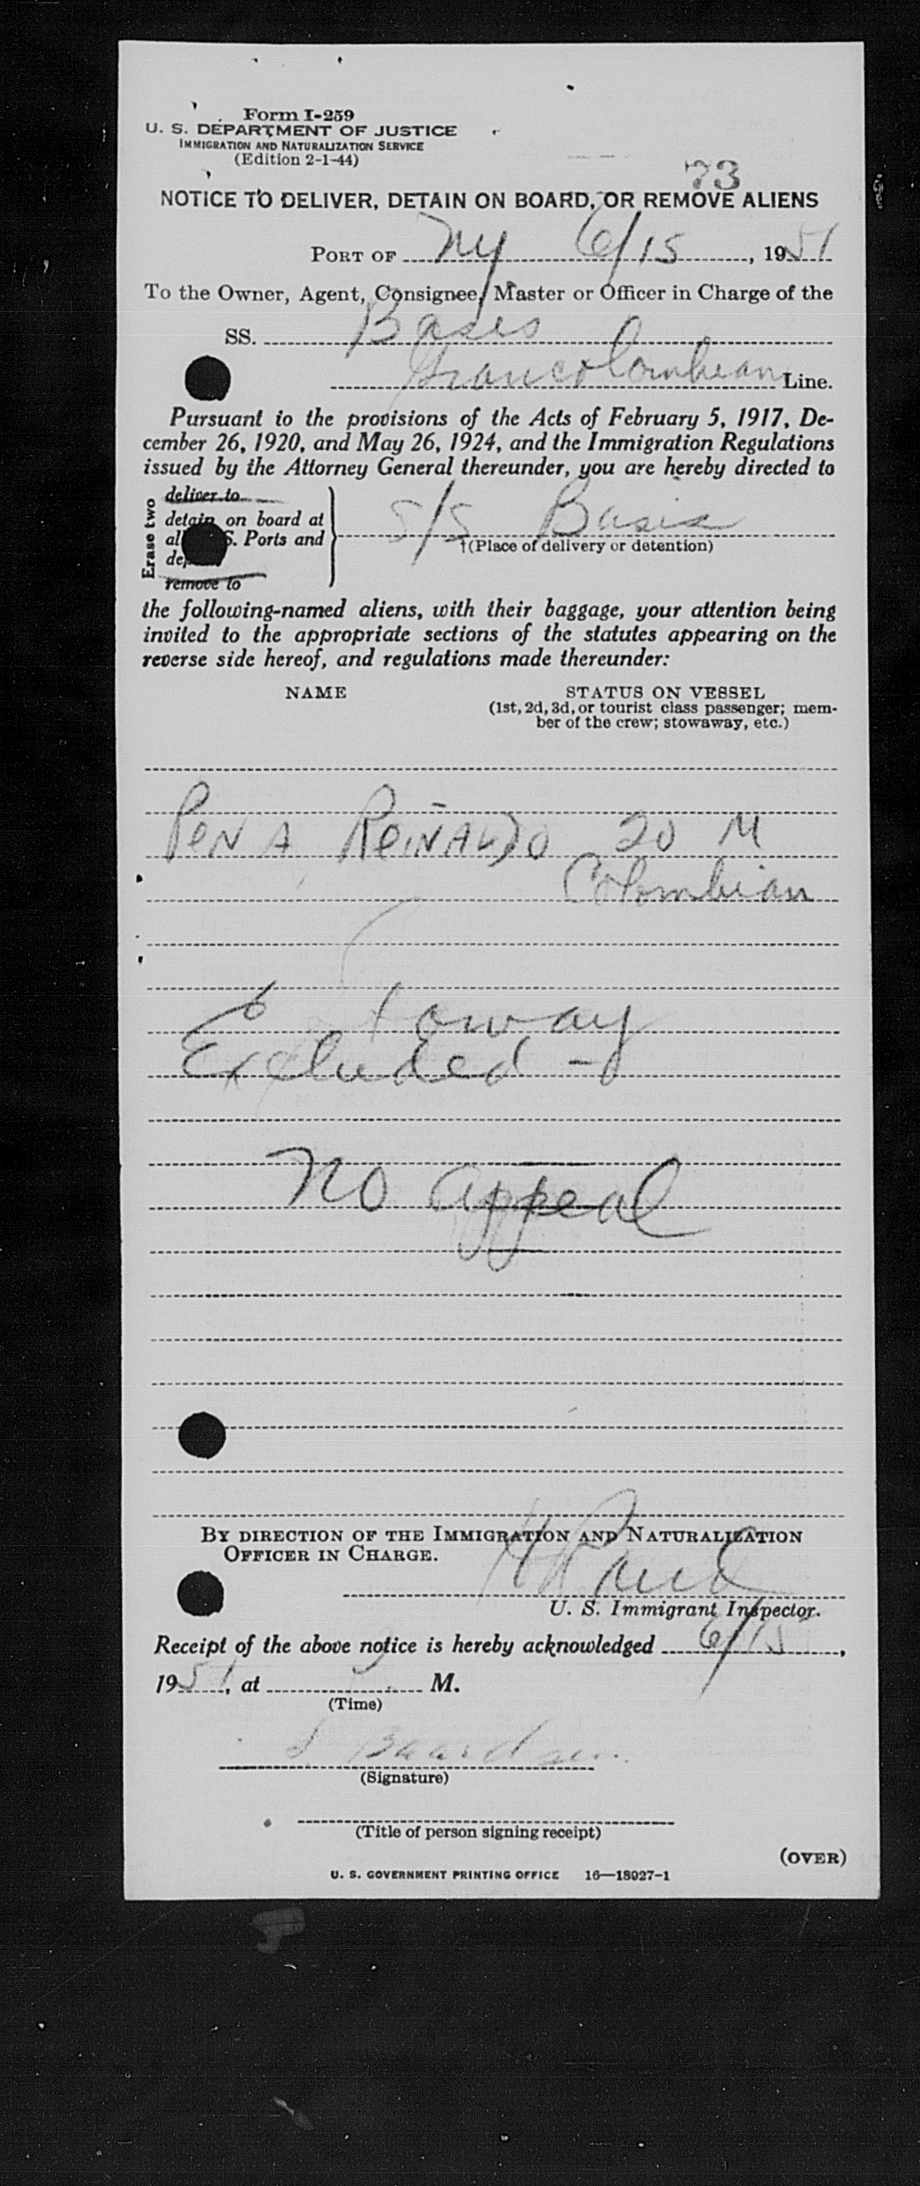 Form I-259
U. S. DEPARTMENT OF JUSTICE
IMMIGRATION AND NATURALIZATION SERVICE
(Edition 2-1-44)
73
NOTICE TO DELIVER, DETAIN ON BOARD, OR REMOVE ALIENS
PORT OF NY 6/15, 1951
To the Owner, Agent, Consignee, Master or Officer in Charge of the
SS. Basis
Grancolombian Line.
Pursuant to the provisions of the Acts of February 5, 1917, De-
cember 26, 1920, and May 26, 1924, and the Immigration Regulations
issued by the Attorney General thereunder, you are hereby directed to
Erase two
deliver to
detain on board at
S. Ports and
remove to
S/S Basis
†(Place of delivery or detention)
the following-named aliens, with their baggage, your attention being
invited to the appropriate sections of the statutes appearing on the
reverse side hereof, and regulations made thereunder:
NAME STATUS ON VESSEL
(1st, 2d, 3d, or tourist class passenger; mem-
ber of the crew; stowaway, etc.)
PENA REINALDO 20 M
Colombian
Excluded -
No appeal
BY DIRECTION OF THE IMMIGRATION AND NATURALIZATION
OFFICER IN CHARGE.
U. S. Immigrant Inspector.
Receipt of the above notice is hereby acknowledged 6/15,
1951, at M.
(Time)
Baardsen
(Signature)
(Title of person signing receipt)
(OVER)
U. S. GOVERNMENT PRINTING OFFICE 16—18027-1